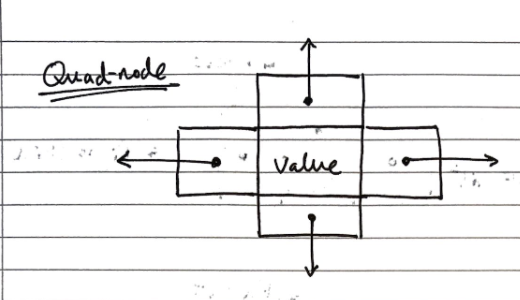 Quad-node
Value